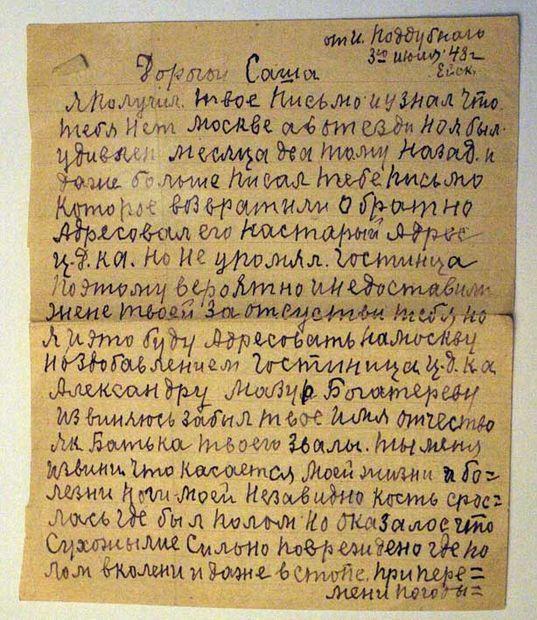 от И. Поддубного
3го июля 48 г
Ейск.
Дорогой Саша
Я получил. твое письмо и узнал что
тебя нет москве а в отезди но я был.
удивлен месяца два тому назад. и
даже больше писал тебе письмо
которое возвратили обратно
Адресовал его настарый Адрес
Ц.д.ка. но не упомял. Гостинца
поэтому вероятно и недоставили
жене твоей за отсуствй тебя но
я и это буду Адресовать на москву
но здобавлением Гостиница Ц.д.ка
Александру мазур Богатереву
извиняюсь забыл твое имя отчество
як Батька твоего звалы. ты меня
извини. что касается моей жизни и бо=
лезни ноги моей незавидно кость срос=
лась где был полом но оказалос что
Сухожилие сильно поврезидено где по
лом вколени и даже в стопе. при пере=
мени погоды=